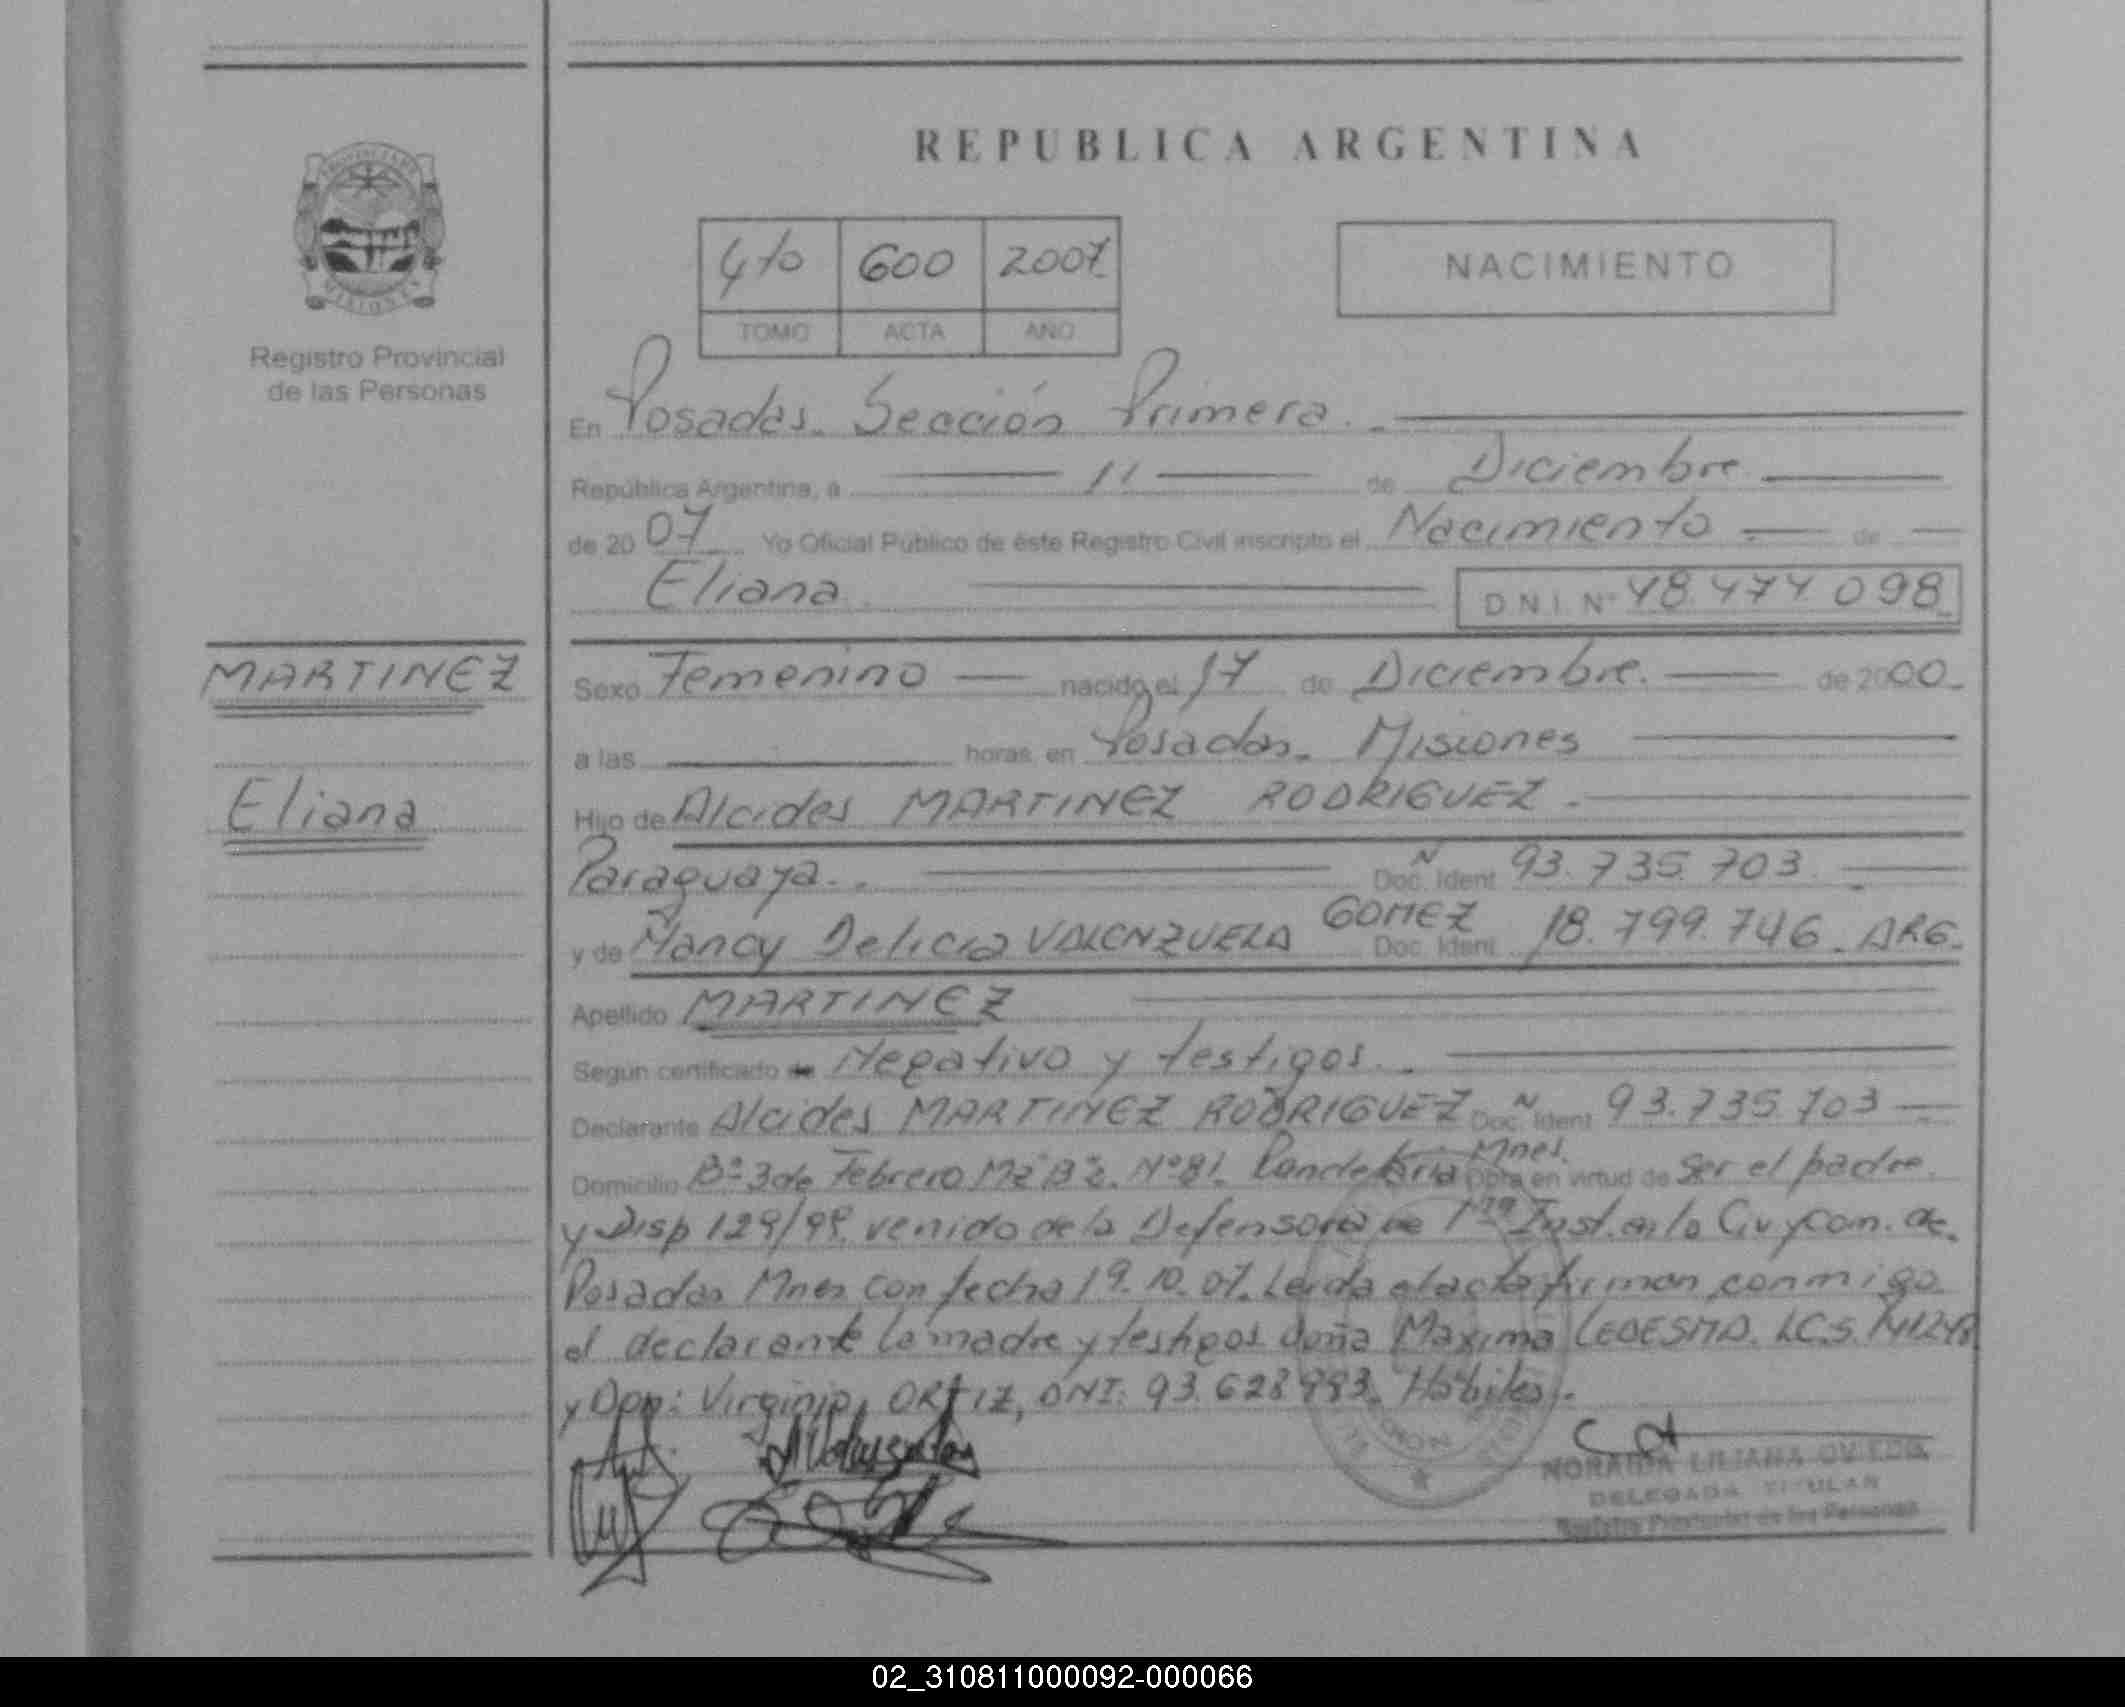 REPUBLICA ARGENTINA
PROVINCIA DE MISIONES
Registro Provincial
de las Personas
4to 600 2007
TOMO ACTA AÑO
NACIMIENTO
En Posadas. Sección Primera.
República Argentina, a 11 de Diciembre
de 2007 Yo Oficial Público de éste Registro Civil inscripto el Nacimiento de
Eliana D.N.I. Nº 48.474.098
MARTINEZ
Eliana
Sexo Femenino nacido el 17 de Diciembre. de 2000
a las horas, en Posadas. Misiones
Hijo de Alcides MARTINEZ RODRIGUEZ.
Paraguaya. Doc. Ident. 93.735.703.
y de Nancy Delicia VALENZUELA GOMEZ Doc. Ident. 18.799.746. ARG.
Apellido MARTINEZ
Según certificado de Negativo y testigos.
Declarante Alcides MARTINEZ RODRIGUEZ Doc. Ident. 93.735.703
Domicilio Bº 3 de Febrero Mz B Nº 81. Mnes. Obra en virtud de ser el padre.
y Disp 129/99. venido de la Defensoria de 1ra Inst. en lo Civ y Com. de
Posadas Mnes con fecha 19.10.07. Leida el acta firman conmigo
el declarante la madre y testigos doña Maxima LEDESMA. L.C.
y Dña: Virginia ORTIZ, DNI: 93.628.993. Hábiles.
NORAIDA LILIANA OVIEDO
DELEGADA TITULAR
Registro Provincial de las Personas
02_310811000092-000066